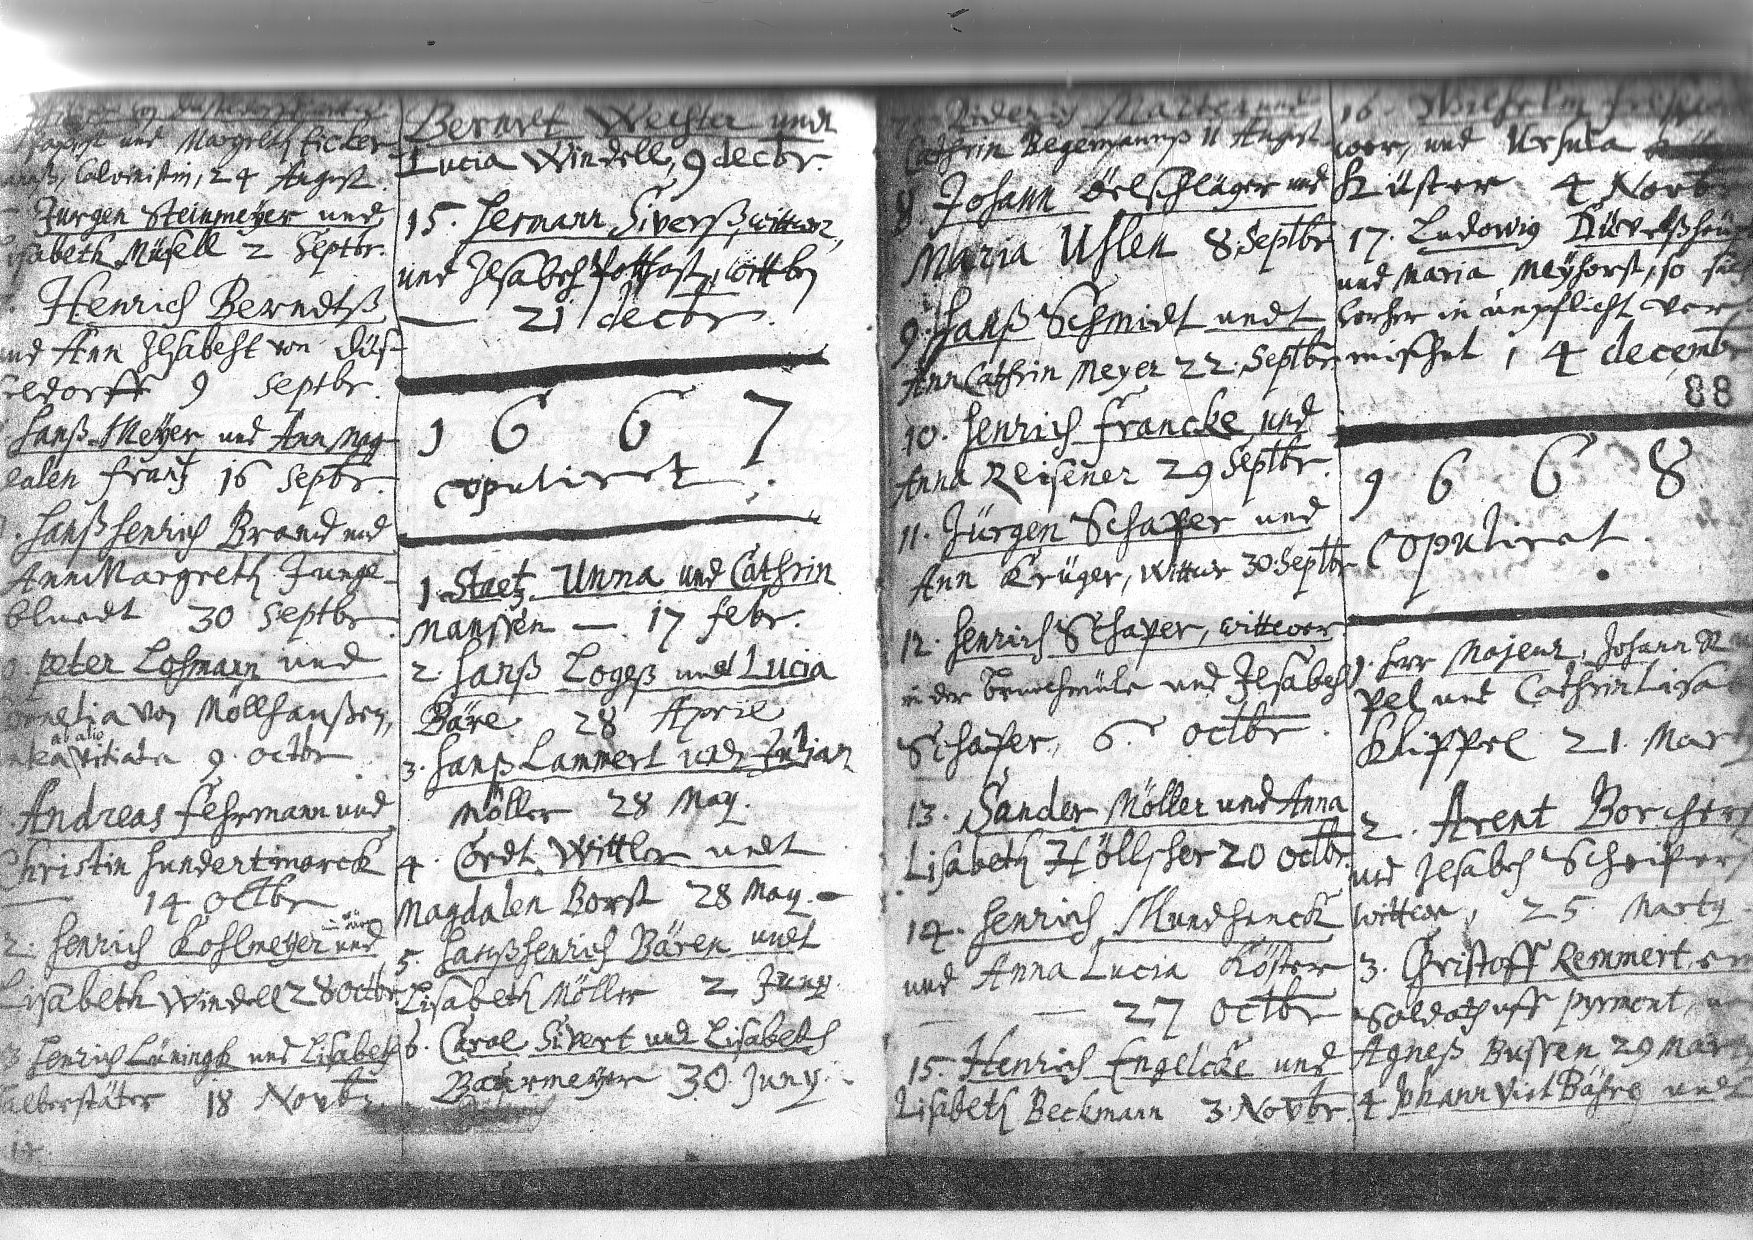 und Margreth Ficker
Calvinistin, 24 August.
Jürgen Steinmeyer und
Lisabeth Müsell 2 Septbr.
Henrich Berndtß
und Ann Ilsabeht von Düs-
seldorff 9 Septbr.
Hanß Meyer und Ann Mag-
dalen Frantz 16 Septbr.
Hanß Henrich Brand und
Ann Margreth Junge-
bluedt 30 Septbr.
Peter Lohmann und
Cornelia von Möllhaußen,
ab alio
vitiata 9. Octbr.
Andreas Fehrmann und
Christin Hundertmarck
14 Octbr
2. Henrich Kohlmeyer und
Lisabeth Windell 28 Octbr.
3 Henrich Lüningk und Lisabeth
Halberstäter 18 Novbr
14.
Berndt Wechter undt
Lucia Windell, 9 decbr.
15. Hermann Siverß, wittwer,
und Ilsabeh Potthast, wittbe
— 21 decbr.
1 6 6 7
Copuliret.
1. Staetz Unna und Cathrin
Manssen — 17 febr.
2. Hanß Logeß undt Lucia
Bäre 28 April
3. Hanß Lammert undt Julian
Möller 28 May.
4. Cordt Wittler undt
Magdalen Borst 28 May. —
5. Hanß Henrich Bären undt
Lisabeth Möller 2 Juny.
6. Carol Sivert und Lisabeth
Baurmeyer 30. Juny.
Cathrin Begemannß 11 August
8 Johann Oelschläger und
Maria Uhlen 8 Septbr
9. Hanß Schmidt undt
Ann Cathrin Meyer 22. Septbr
10. Henrich Francke und
Anna Reisener 29 Septbr.
11. Jürgen Schaper und
Ann Krüger, Wittwe 30. Septbr
12. Henrich Schaper, wittwer
in der Bruchmüle und Ilsabeh
Schaper, 6. Octbr.
13. Sander Möller und Anna
Lisabeth Höllscher 20 Octbr.
14. Henrich Mundhenck
und Anna Lucia Köster
— — 27 Octbr
15. Henrich Engelcke und
Lisabeth Beckmann 3. Novbr.
16. Wilhelm
wer, und Ursula
Küster 4 Novbr
17. Ludowig
und Maria Meyhorst, so sich
vorher in unpflicht ver-
mischet, 4 decembr
88
1 6 6 8
Copuliret.
1. Herr Majeur, Johann
pel und Cathrin Lisa
Klippel 21. Marty
2. Arent Borchers
und Ilsabeh Schreiber
wittwe, 25 Marty.
3. Christoff Remmert, ein
Soldath uff Pyrmont,
Agneß Bussen 29 Marty
4 Johann Viet Bähre undt